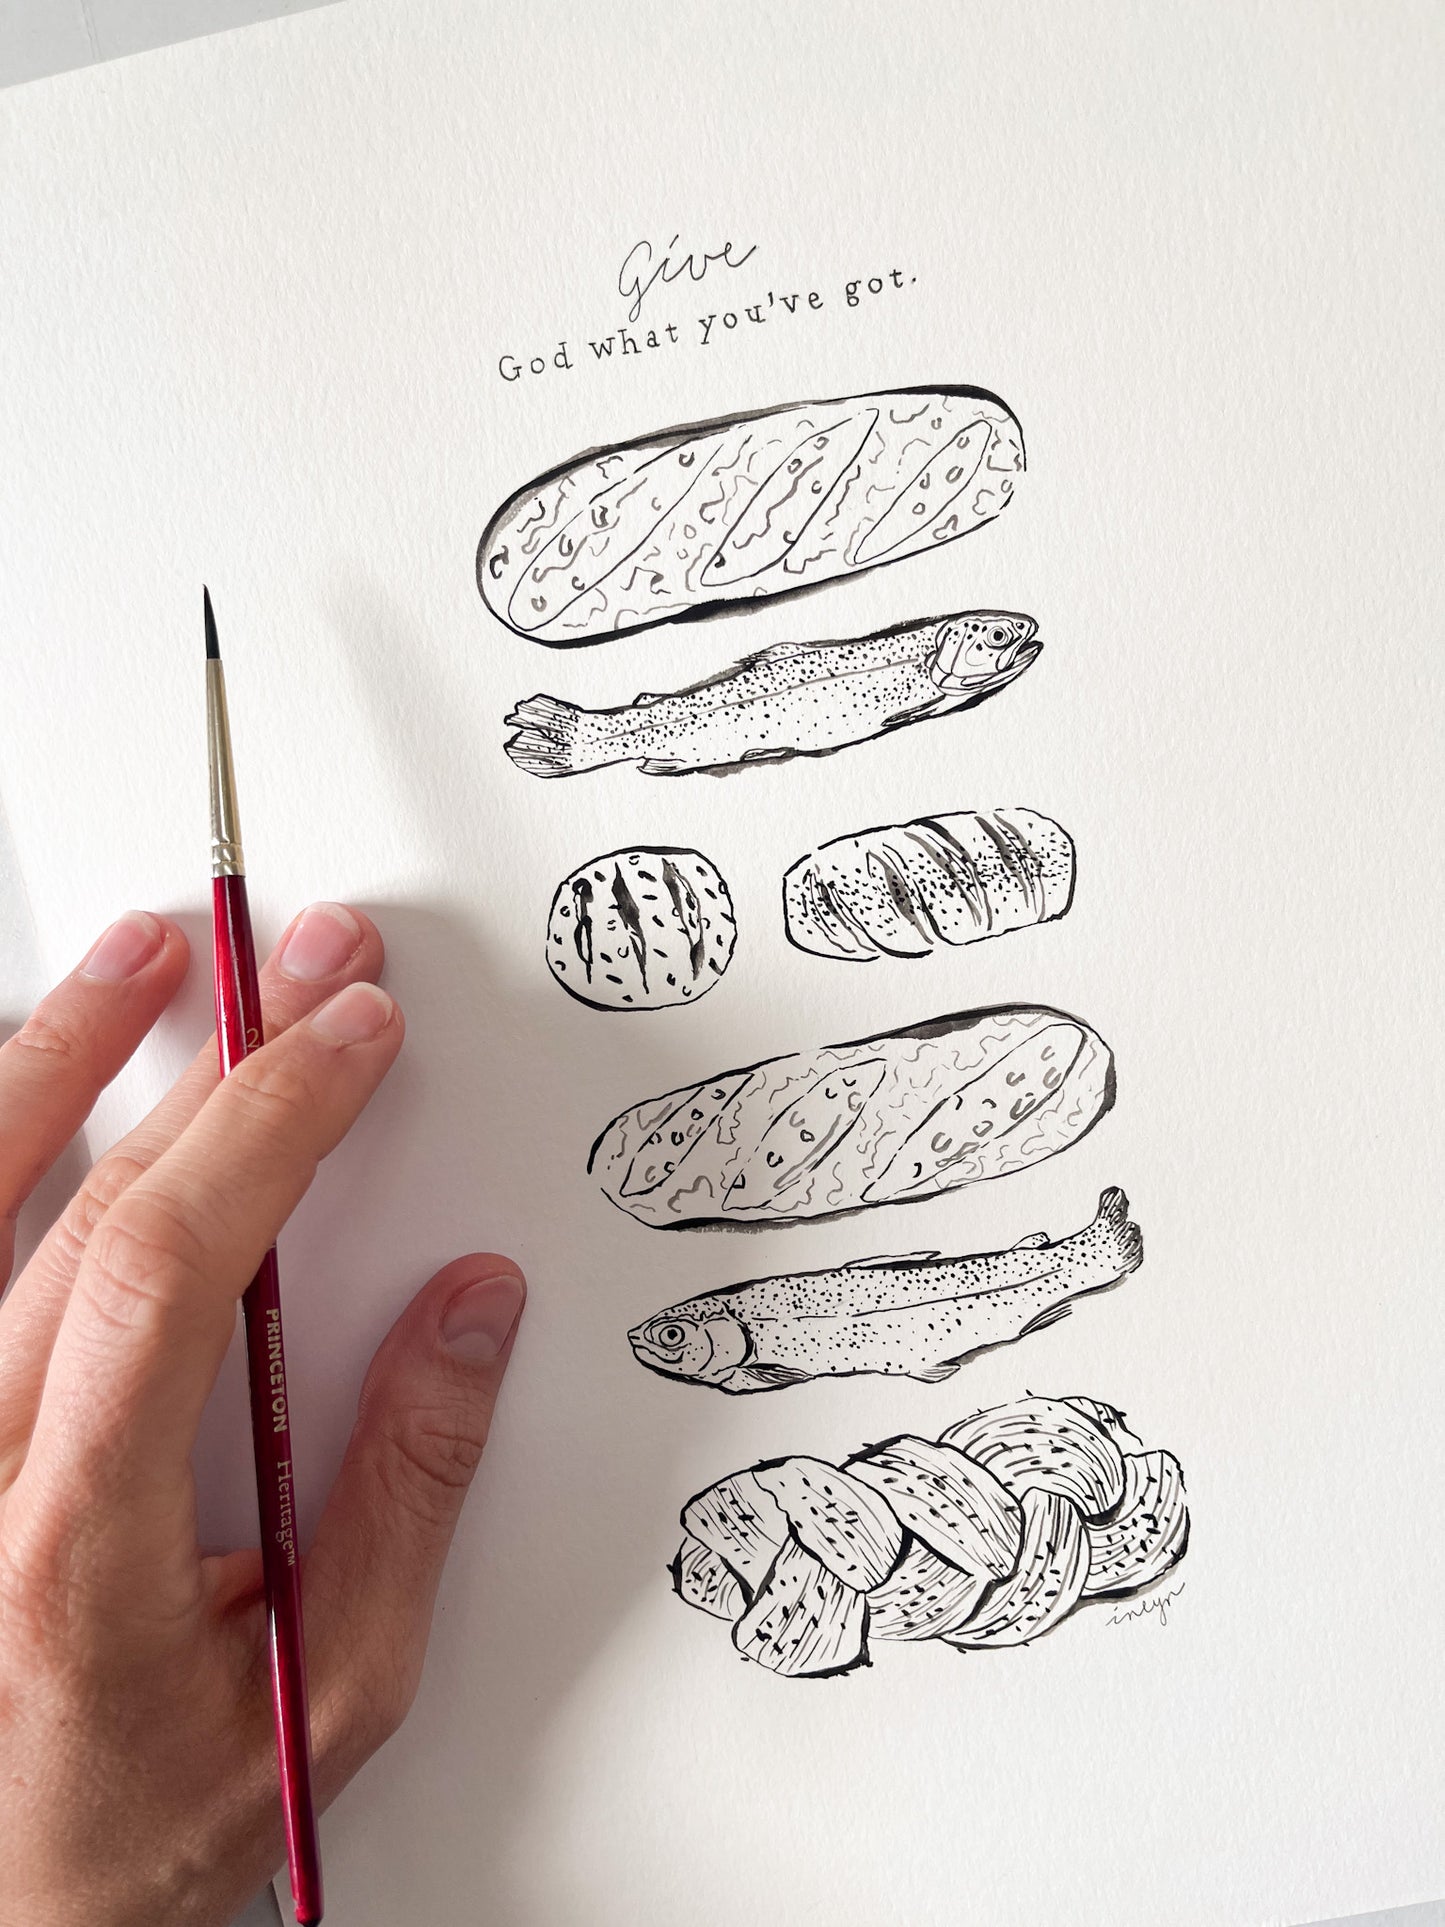 Give
God what you've got.
2
PRINCETON Heritage™
inlyn